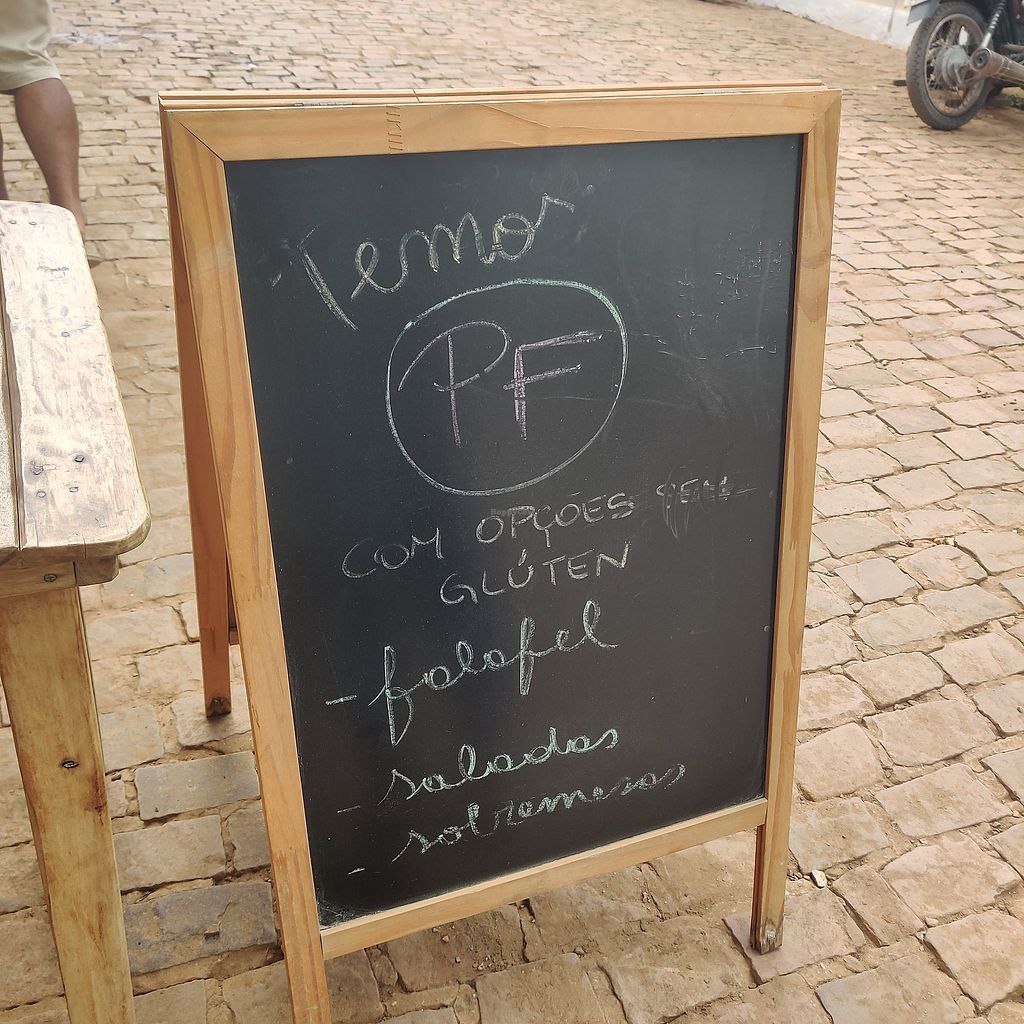 Temos
PF
COM OPÇÕES SEM
GLÚTEN
- falafel
- saladas
- sobremesas